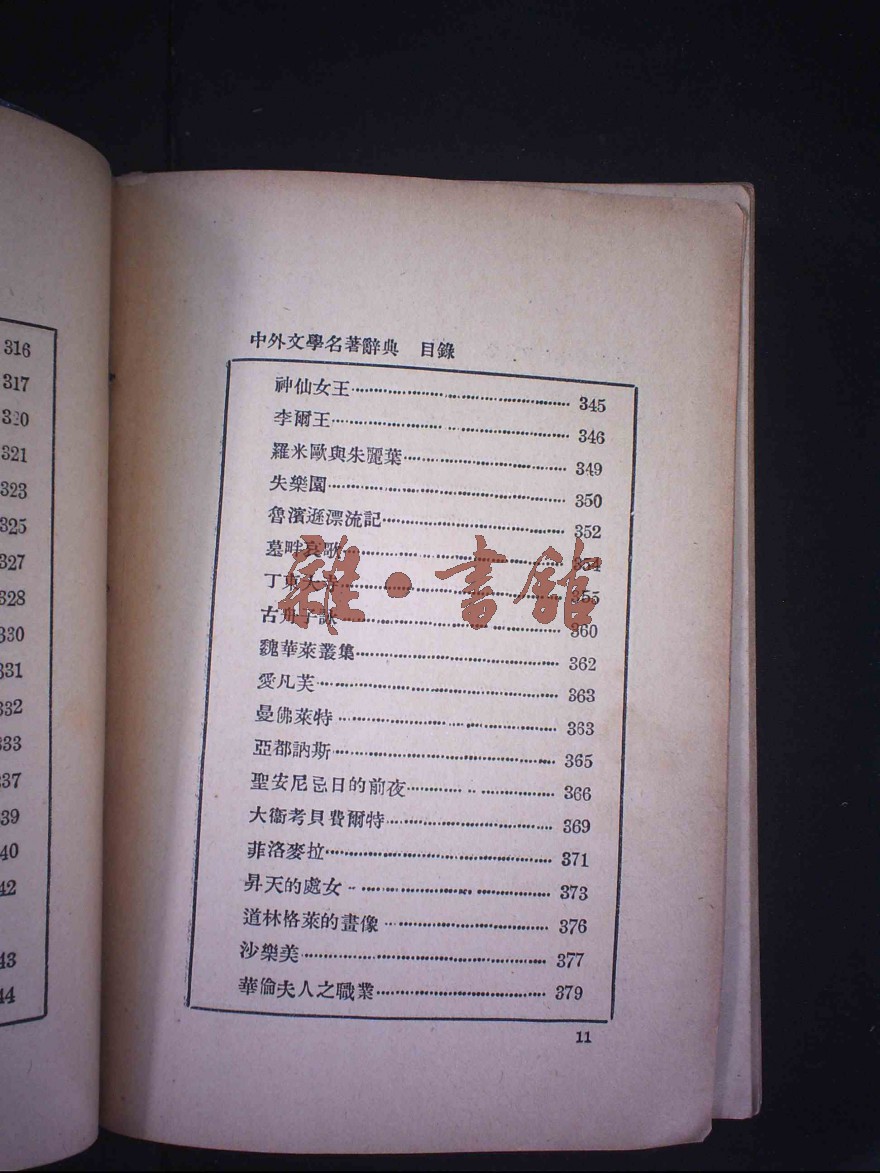 316
317
320
321
323
325
327
328
330
331
332
333
337
39
40
42
43
44
中外文學名著辭典 目錄
神仙女王 345
李爾王 346
羅米歐與朱麗葉 349
失樂園 350
魯濱遜漂流記 352
墓畔哀歌 354
丁東大寺 355
古舟子詠 360
魏華萊叢集 362
愛凡芙 363
曼佛萊特 363
亞都訥斯 365
聖安尼忌日的前夜 366
大衞考貝費爾特 369
菲洛麥拉 371
昇天的處女 373
道林格萊的畫像 376
沙樂美 377
華倫夫人之職業 379
11
雜·書館